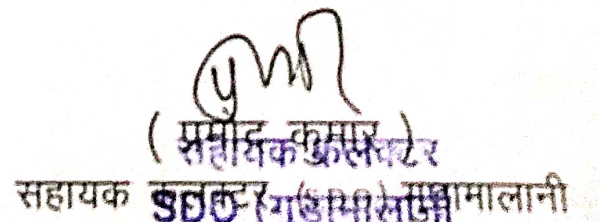 ( प्रमोद कुमार )
सहायक कलक्टर
सहायक कलक्टर
SDO गुडामालानी